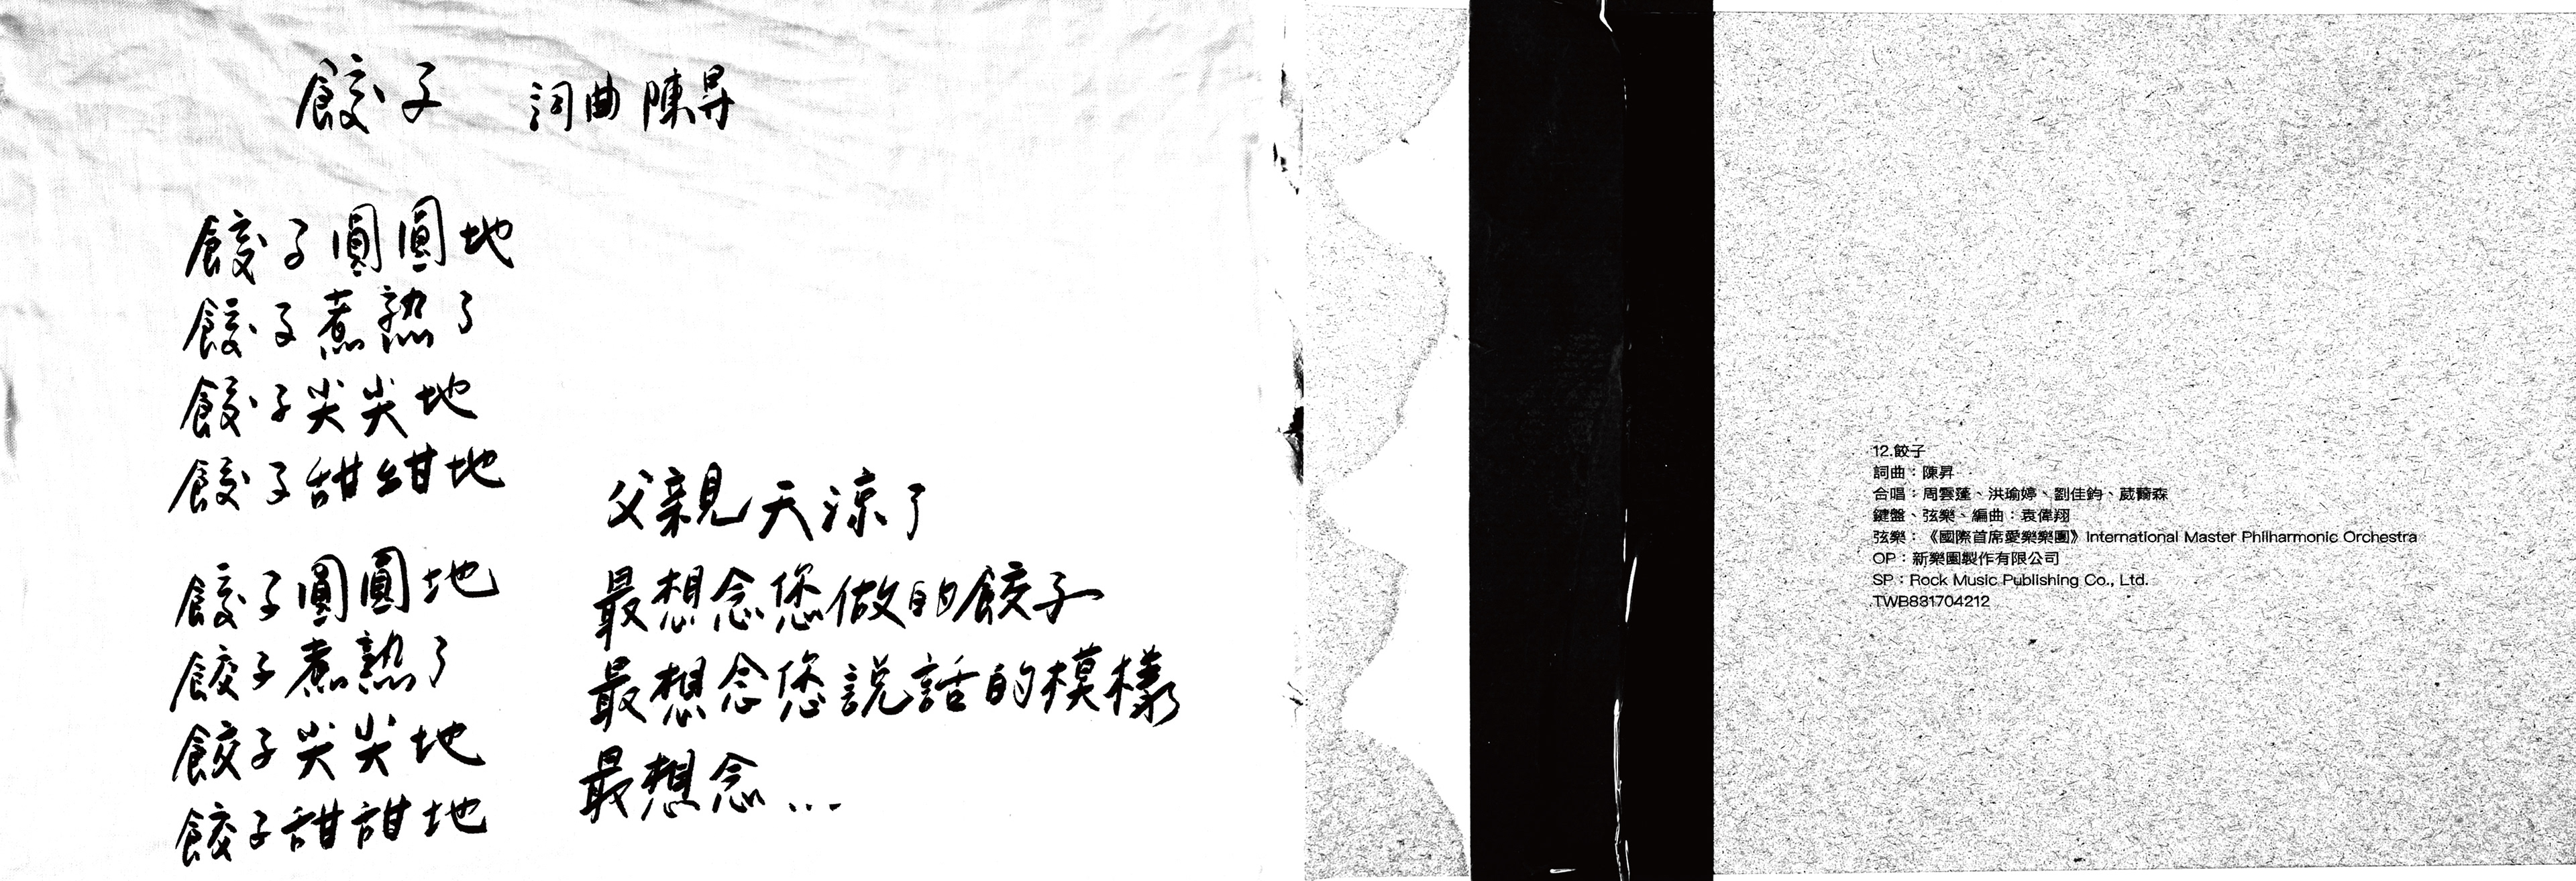 餃子 詞曲 陳昇
餃子圓圓地
餃子煮熟了
餃子尖尖地
餃子甜甜地
餃子圓圓地
餃子煮熟了
餃子尖尖地
餃子甜甜地
父親天涼了
最想念您做的餃子
最想念您說話的模樣
最想念...
12.餃子
詞曲：陳昇
合唱：周雲蓬、洪瑜婷、劉佳鈞、葳蕎森
鍵盤、弦樂、編曲：袁偉翔
弦樂：《國際首席愛樂樂團》International Master Philharmonic Orchestra
OP：新樂園製作有限公司
SP：Rock Music Publishing Co., Ltd.
TWB831704212